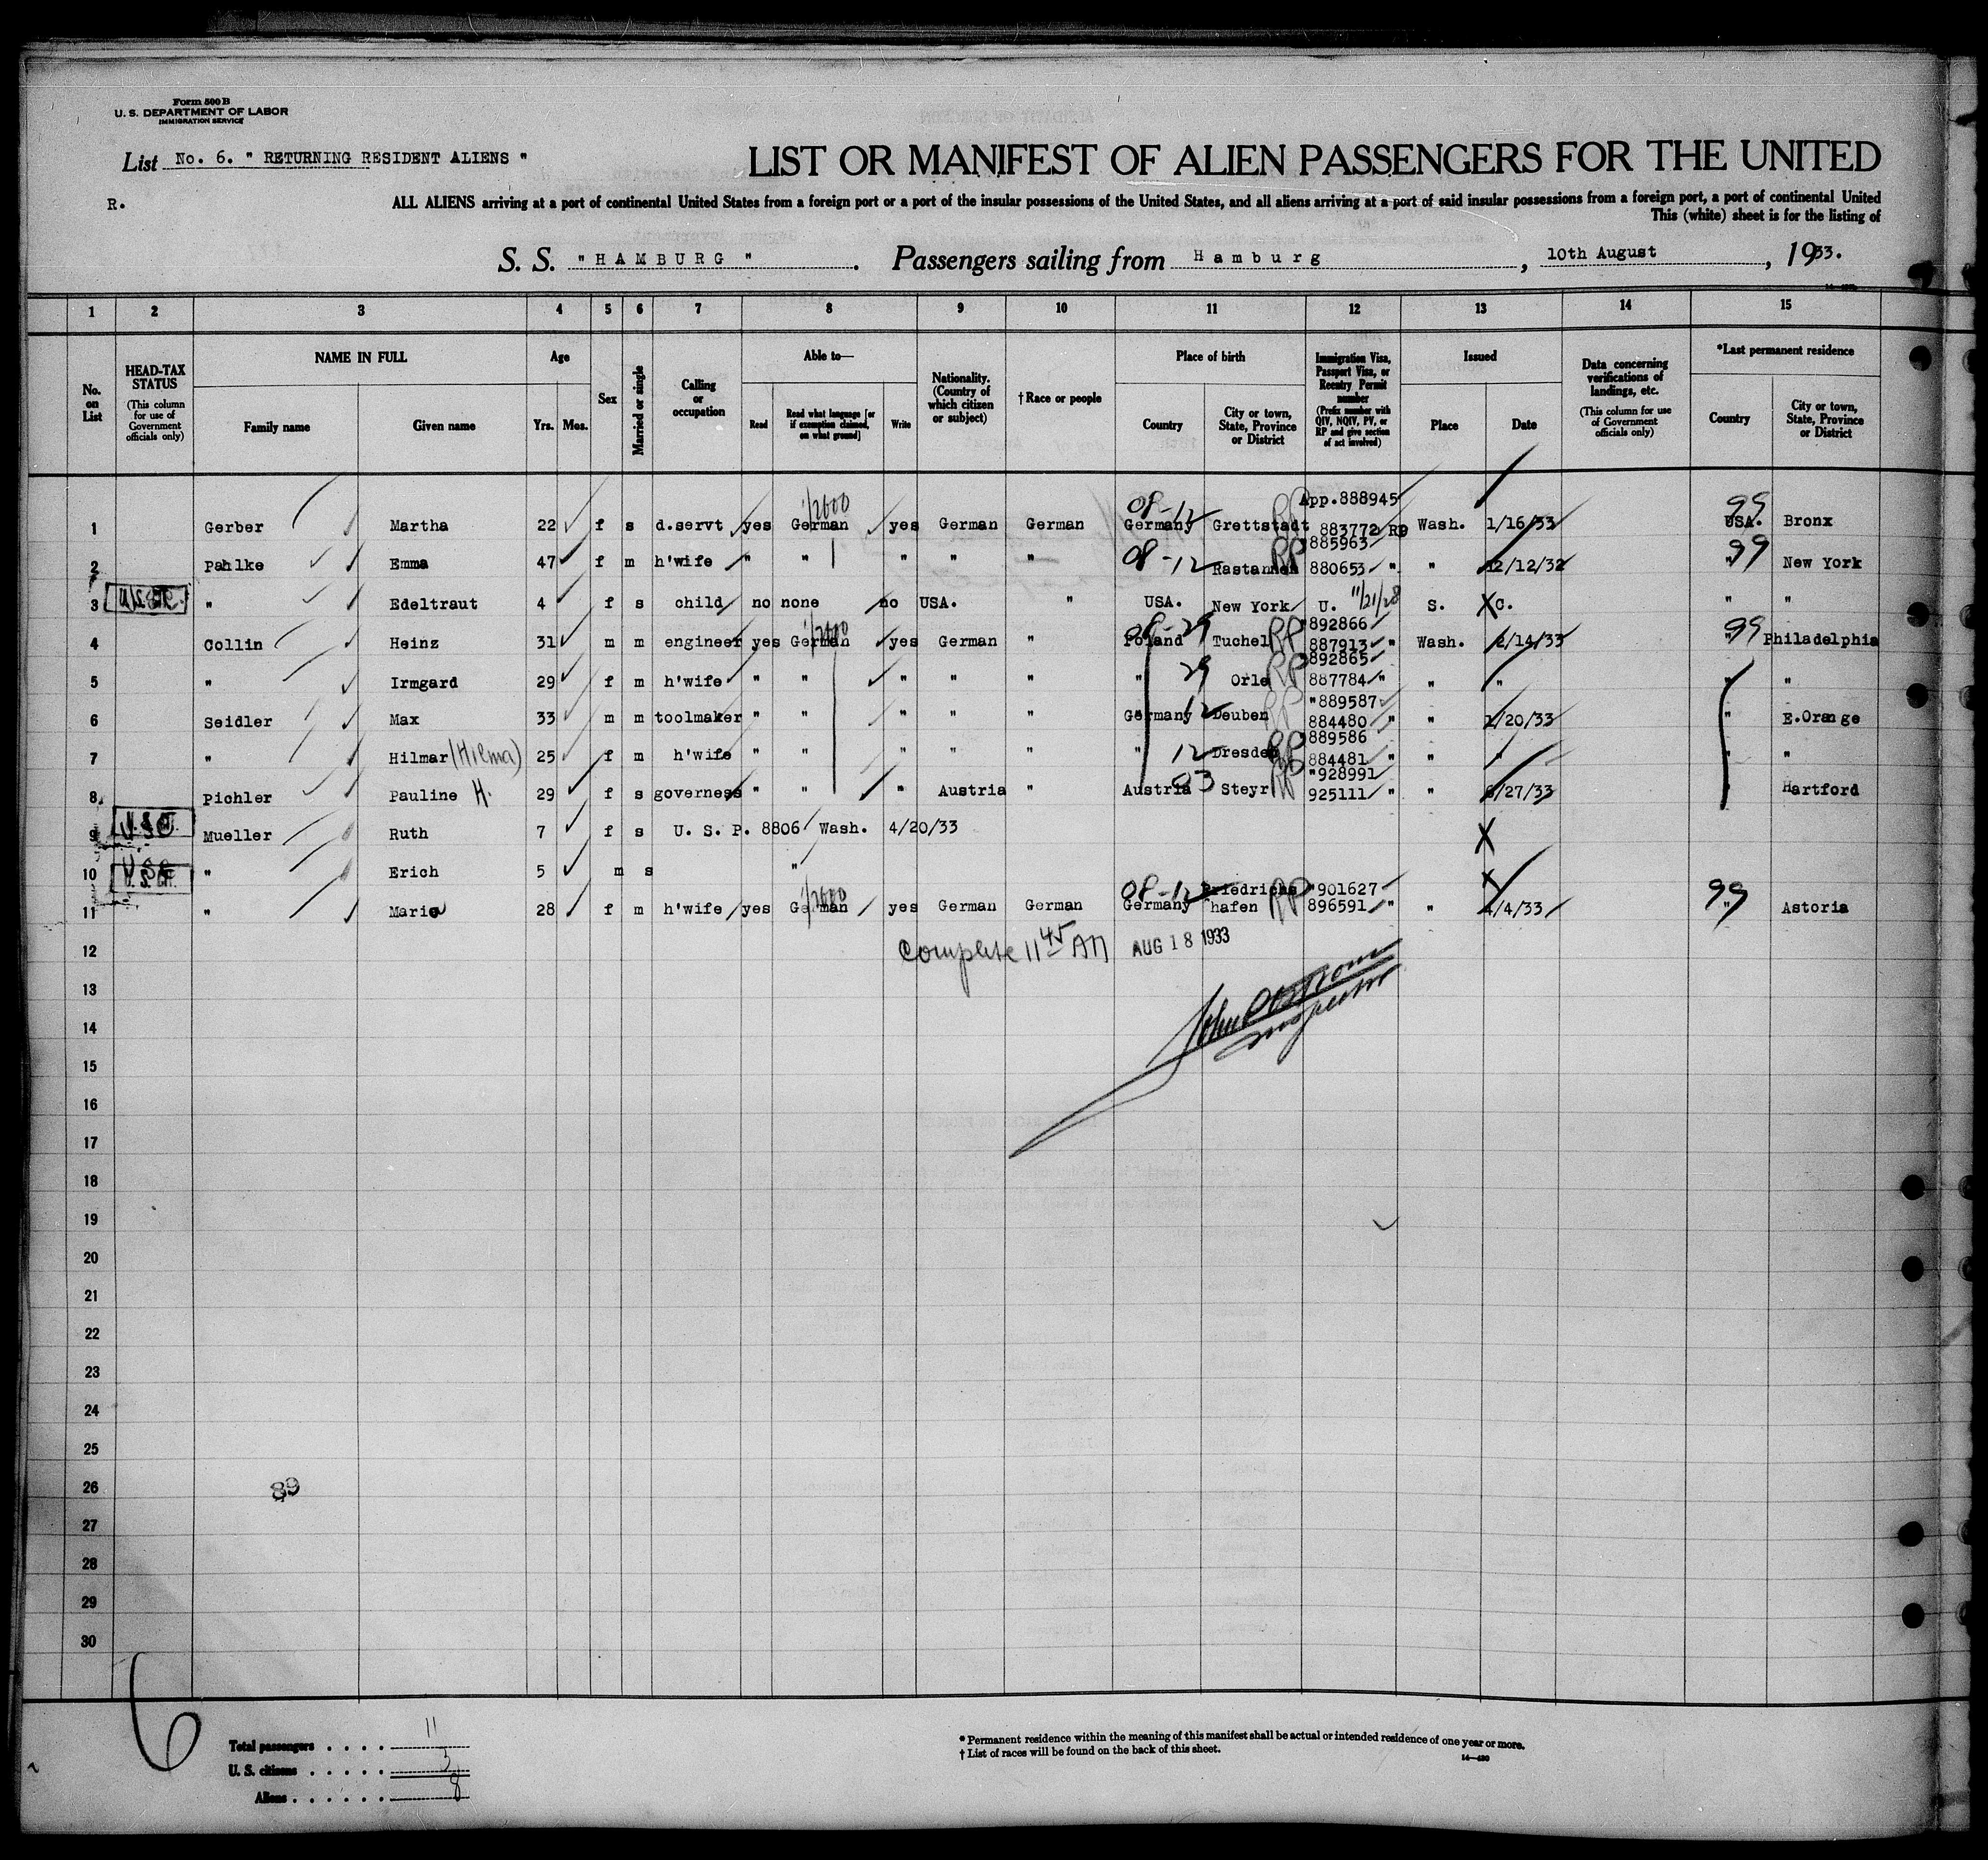 Form 500 B
U. S. DEPARTMENT OF LABOR
IMMIGRATION SERVICE
List No. 6. " RETURNING RESIDENT ALIENS "
R.
LIST OR MANIFEST OF ALIEN PASSENGERS FOR THE UNITED
ALL ALIENS arriving at a port of continental United States from a foreign port or a port of the insular possessions of the United States, and all aliens arriving at a port of said insular possessions from a foreign port, a port of continental United
This (white) sheet is for the listing of
S. S. " H A M B U R G " . Passengers sailing from H a m b u r g , 10th August , 1933.
1 2 3 4 5 6 7 8 9 10 11 12 13 14 15
No. on List
HEAD-TAX STATUS (This column for use of Government officials only)
NAME IN FULL Family name Given name
Age Yrs. Mos.
Sex
Married or single
Calling or occupation
Able to— Read Read what language [or if exemption claimed, on what ground] Write
Nationality. (Country of which citizen or subject)
†Race or people
Place of birth Country City or town, State, Province or District
Immigration Visa, Passport Visa, or Reentry Permit number (Prefix number with QIV, NQIV, PV, or RP and give section of act involved)
Issued Place Date
Data concerning verifications of landings, etc. (This column for use of Government officials only)
*Last permanent residence Country City or town, State, Province or District
08-12 RP App.888945 99
1 Gerber Martha 22 f s d.servt yes German yes German German Germany Grettstadt 883772 RP Wash. 1/16/33 USA. Bronx
08-12 RP "885963 99
2 Pahlke Emma 47 f m h'wife " " " " " " 880653 " " 12/12/32 " New York
3 " Edeltraut 4 f s child no none no USA. " USA. New York U. 11/21/28 S. C. " "
29 RP "892866 99
4 Collin Heinz 31 m m engineer yes German yes German " Poland Tuchel 887913 " Wash. 2/14/33 " Philadelphia
29 RP "892865
5 " Irmgard 29 f m h'wife " " " " " " Orle 887784 " " " " "
12 RP "889587
6 Seidler Max 33 m m toolmaker " " " " " Germany Deuben 884480 " " 1/20/33 " E.Orange
12 RP 889586
7 " Hilmar (Hilma) 25 f m h'wife " " " " " " Dresden 884481 " " " " "
03 RP "928991
8 Pichler Pauline H. 29 f s governess " " " Austria " Austria Steyr 925111 " " 6/27/33 Hartford
9 Mueller Ruth 7 f s U. S. P. 8806 Wash. 4/20/33 X
10 " Erich 5 m s " X
08-12 Friedrichs RP "901627 99
11 " Marie 28 f m h'wife yes German yes German German Germany hafen 896591 " " 4/4/33 " Astoria
12 Complete 11 45 AM AUG 18 1933
13
Inspector
14
15
16
17
18
19
20
21
22
23
24
25
26 89
27
28
29
30
6
Total passengers . . . . 11
U. S. citizens . . . . . 3
Aliens . . . . . . 8
* Permanent residence within the meaning of this manifest shall be actual or intended residence of one year or more.
† List of races will be found on the back of this sheet.
14—430